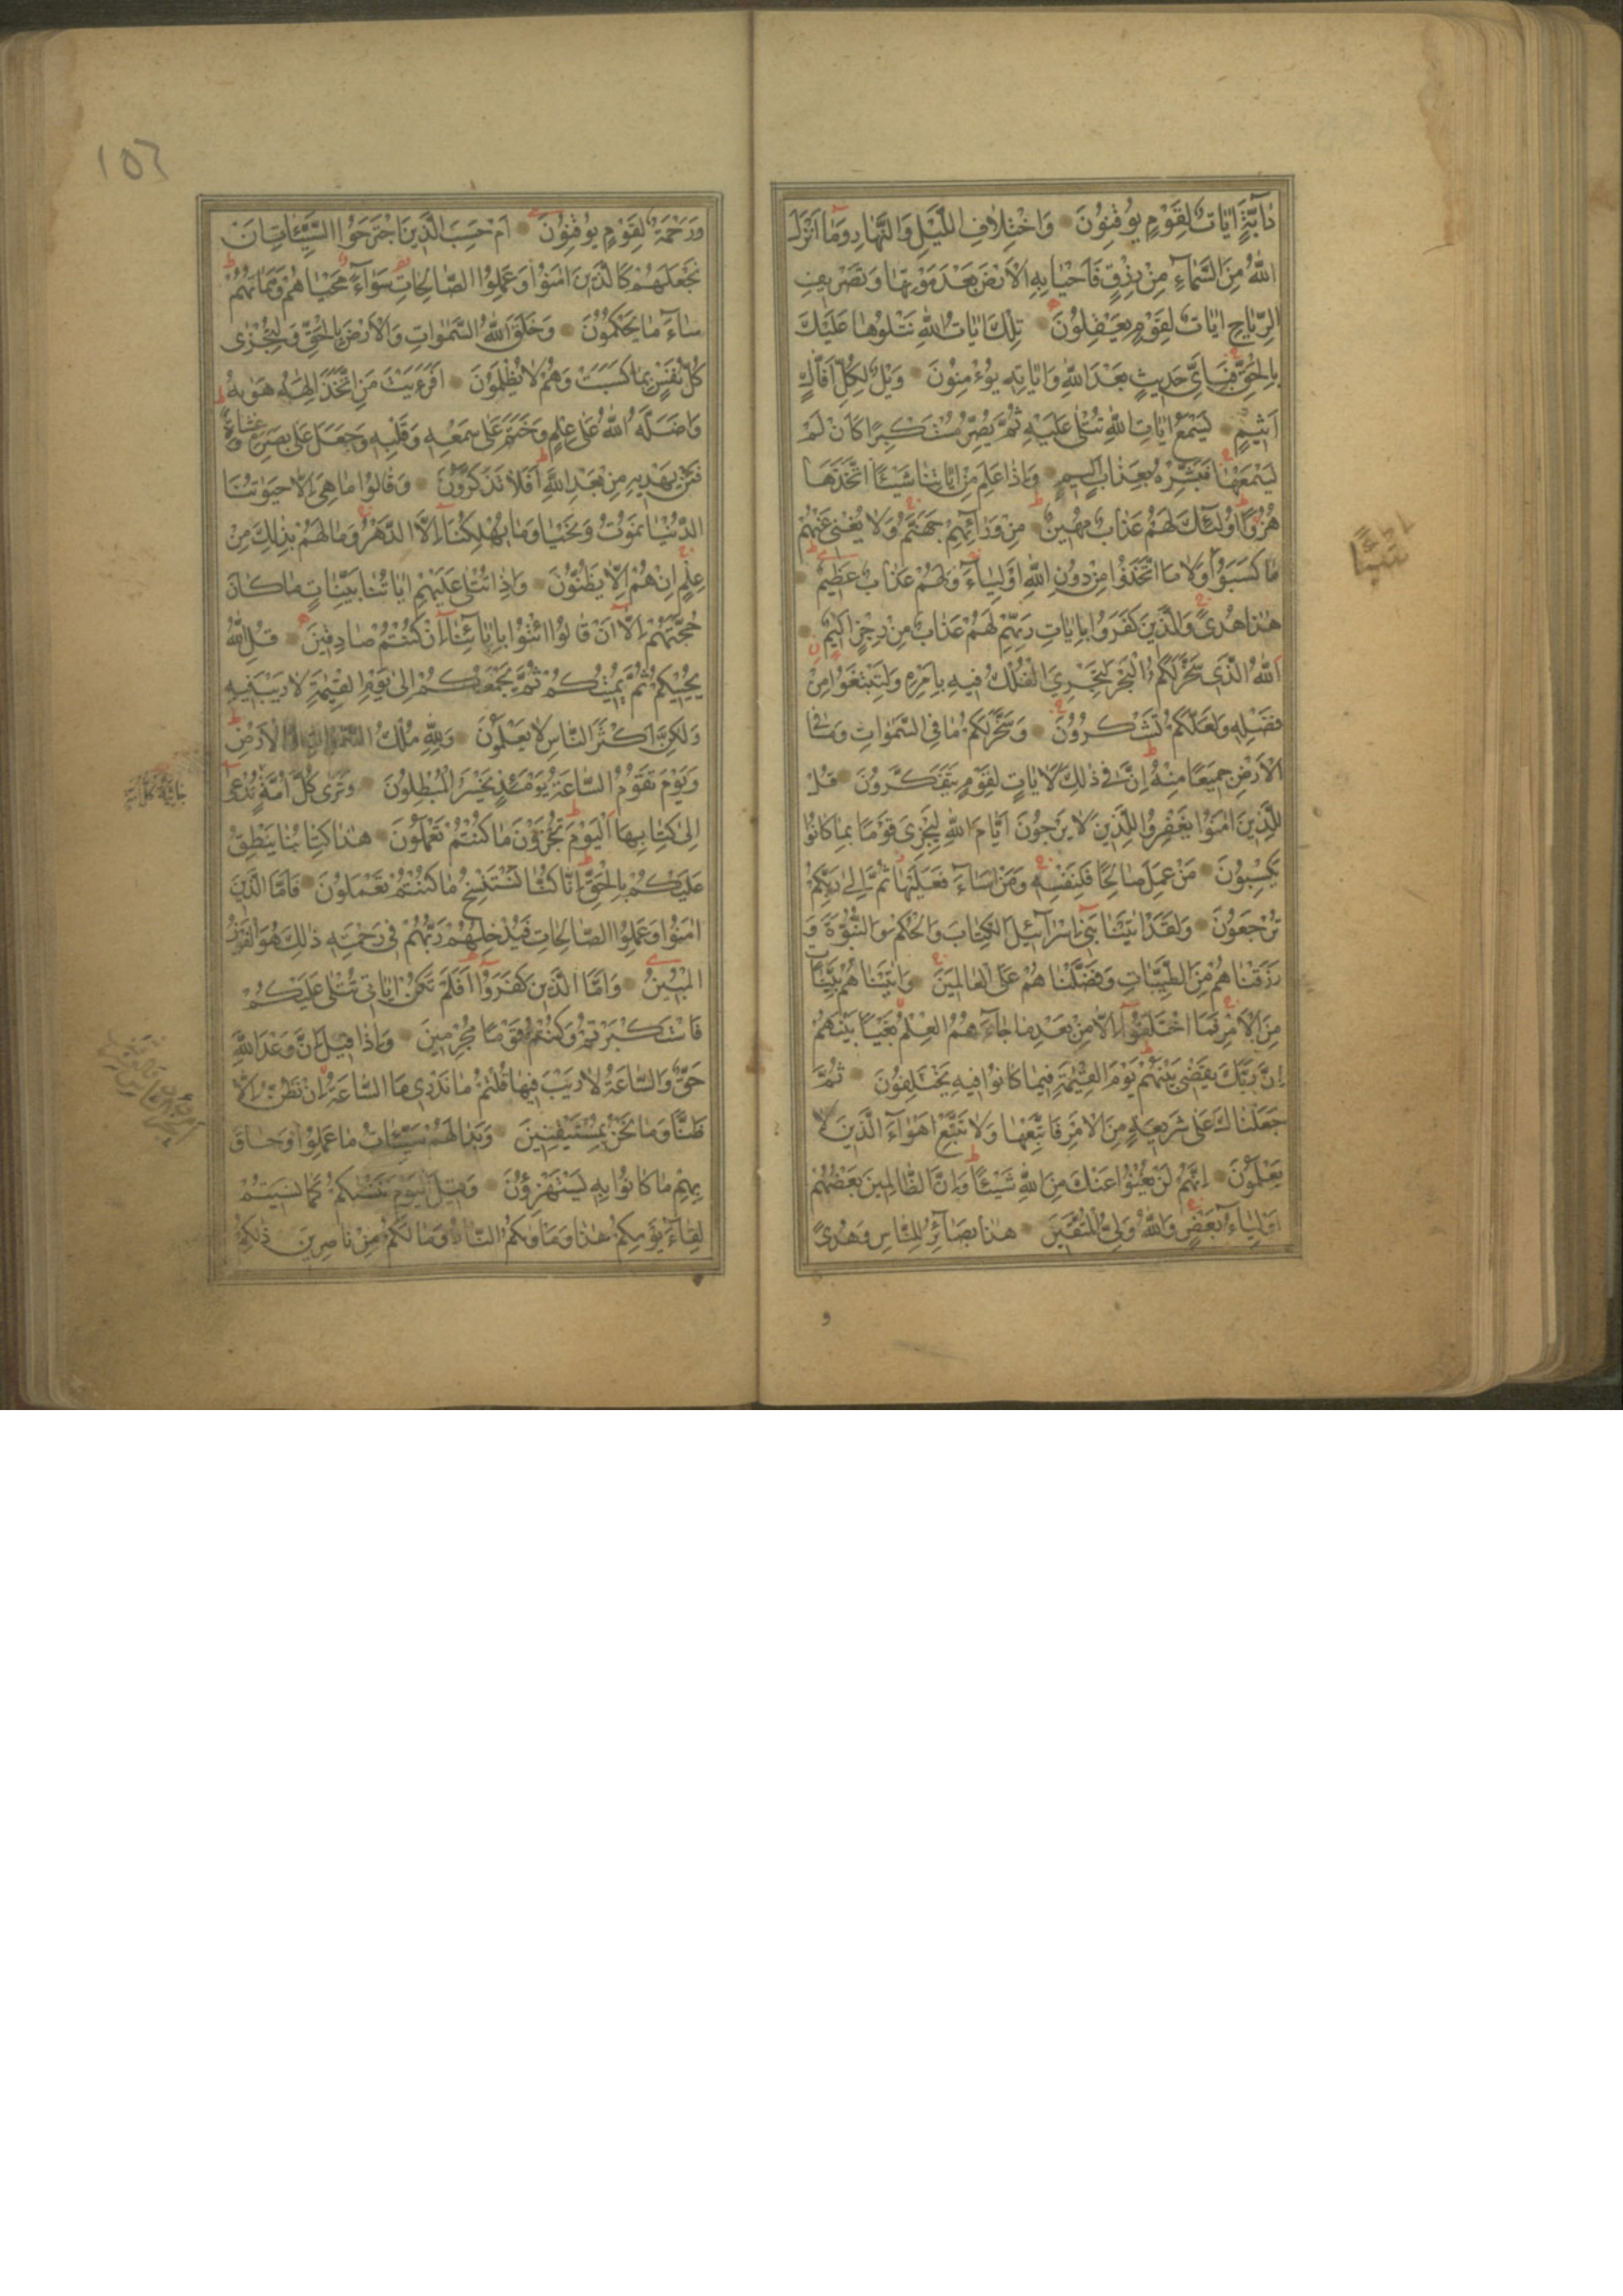 دٰابَّةٍ اٰيٰاتٌ لِقَوْمٍ يُوقِنُونَ وَاخْتِلَافِ اللَّيْلِ وَالنَّهٰارِ وَمٰا اَنْزَلَ
اللّٰهُ مِنَ السَّمٰاءِ مِنْ رِزْقٍ فَاَحْيٰا بِهِ الْاَرْضَ بَعْدَ مَوْتِهٰا وَتَصْرِيفِ
الرِّيٰاحِ اٰيٰاتٌ لِقَوْمٍ يَعْقِلُونَ تِلْكَ اٰيٰاتُ اللّٰهِ نَتْلُوهٰا عَلَيْكَ
بِالْحَقِّ فَبِاَيِّ حَدِيثٍ بَعْدَ اللّٰهِ وَاٰيٰاتِهِ يُؤْمِنُونَ وَيْلٌ لِكُلِّ اَفّٰاكٍ
اَثِيمٍ يَسْمَعُ اٰيٰاتِ اللّٰهِ تُتْلٰى عَلَيْهِ ثُمَّ يُصِرُّ مُسْتَكْبِرًا كَاَنْ لَمْ
يَسْمَعْهٰا فَبَشِّرْهُ بِعَذٰابٍ اَلِيمٍ وَاِذٰا عَلِمَ مِنْ اٰيٰاتِنٰا شَيْئًا اتَّخَذَهٰا
هُزُوًا اُولٰئِكَ لَهُمْ عَذٰابٌ مُهِينٌ مِنْ وَرٰائِهِمْ جَهَنَّمُ وَلٰا يُغْنِي عَنْهُمْ
مٰا كَسَبُوا وَلٰا مَا اتَّخَذُوا مِنْ دُونِ اللّٰهِ اَوْلِيٰاءَ وَلَهُمْ عَذٰابٌ عَظِيمٌ
هٰذٰا هُدًى وَالَّذِينَ كَفَرُوا بِاٰيٰاتِ رَبِّهِمْ لَهُمْ عَذٰابٌ مِنْ رِجْزٍ اَلِيمٌ
اَللّٰهُ الَّذِي سَخَّرَ لَكُمُ الْبَحْرَ لِتَجْرِيَ الْفُلْكُ فِيهِ بِاَمْرِهِ وَلِتَبْتَغُوا مِنْ
فَضْلِهِ وَلَعَلَّكُمْ تَشْكُرُونَ وَسَخَّرَ لَكُمْ مٰا فِي السَّمٰوٰاتِ وَمٰا فِي
الْاَرْضِ جَمِيعًا مِنْهُ اِنَّ فِي ذٰلِكَ لَاٰيٰاتٍ لِقَوْمٍ يَتَفَكَّرُونَ قُلْ
لِلَّذِينَ اٰمَنُوا يَغْفِرُوا لِلَّذِينَ لٰا يَرْجُونَ اَيّٰامَ اللّٰهِ لِيَجْزِيَ قَوْمًا بِمٰا كٰانُوا
يَكْسِبُونَ مَنْ عَمِلَ صٰالِحًا فَلِنَفْسِهِ وَمَنْ اَسٰاءَ فَعَلَيْهٰا ثُمَّ اِلٰى رَبِّكُمْ
تُرْجَعُونَ وَلَقَدْ اٰتَيْنٰا بَنِي اِسْرٰائِيلَ الْكِتٰابَ وَالْحُكْمَ وَالنُّبُوَّةَ وَ
رَزَقْنٰاهُمْ مِنَ الطَّيِّبٰاتِ وَفَضَّلْنٰاهُمْ عَلَى الْعٰالَمِينَ وَاٰتَيْنٰاهُمْ بَيِّنٰاتٍ
مِنَ الْاَمْرِ فَمَا اخْتَلَفُوا اِلّٰا مِنْ بَعْدِ مٰا جٰاءَهُمُ الْعِلْمُ بَغْيًا بَيْنَهُمْ
اِنَّ رَبَّكَ يَقْضِي بَيْنَهُمْ يَوْمَ الْقِيٰمَةِ فِيمٰا كٰانُوا فِيهِ يَخْتَلِفُونَ ثُمَّ
جَعَلْنٰاكَ عَلٰى شَرِيعَةٍ مِنَ الْاَمْرِ فَاتَّبِعْهٰا وَلٰا تَتَّبِعْ اَهْوٰاءَ الَّذِينَ لٰا
يَعْلَمُونَ اِنَّهُمْ لَنْ يُغْنُوا عَنْكَ مِنَ اللّٰهِ شَيْئًا وَاِنَّ الظّٰالِمِينَ بَعْضُهُمْ
اَوْلِيٰاءُ بَعْضٍ وَاللّٰهُ وَلِيُّ الْمُتَّقِينَ هٰذٰا بَصٰائِرُ لِلنّٰاسِ وَهُدًى
١٥٦
وَرَحْمَةٌ لِقَوْمٍ يُوقِنُونَ اَمْ حَسِبَ الَّذِينَ اجْتَرَحُوا السَّيِّئٰاتِ اَنْ
نَجْعَلَهُمْ كَالَّذِينَ اٰمَنُوا وَعَمِلُوا الصّٰالِحٰاتِ سَوٰاءً مَحْيٰاهُمْ وَمَمٰاتُهُمْ
سٰاءَ مٰا يَحْكُمُونَ وَخَلَقَ اللّٰهُ السَّمٰوٰاتِ وَالْاَرْضَ بِالْحَقِّ وَلِتُجْزٰى
كُلُّ نَفْسٍ بِمٰا كَسَبَتْ وَهُمْ لٰا يُظْلَمُونَ اَفَرَءَيْتَ مَنِ اتَّخَذَ اِلٰهَهُ هَوٰيهُ
وَاَضَلَّهُ اللّٰهُ عَلٰى عِلْمٍ وَخَتَمَ عَلٰى سَمْعِهِ وَقَلْبِهِ وَجَعَلَ عَلٰى بَصَرِهِ غِشٰاوَةً
فَمَنْ يَهْدِيهِ مِنْ بَعْدِ اللّٰهِ اَفَلٰا تَذَكَّرُونَ وَقٰالُوا مٰا هِيَ اِلّٰا حَيٰوتُنَا
الدُّنْيٰا نَمُوتُ وَنَحْيٰا وَمٰا يُهْلِكُنٰا اِلَّا الدَّهْرُ وَمٰا لَهُمْ بِذٰلِكَ مِنْ
عِلْمٍ اِنْ هُمْ اِلّٰا يَظُنُّونَ وَاِذٰا تُتْلٰى عَلَيْهِمْ اٰيٰاتُنٰا بَيِّنٰاتٍ مٰا كٰانَ
حُجَّتَهُمْ اِلّٰا اَنْ قٰالُوا ائْتُوا بِاٰبٰائِنٰا اِنْ كُنْتُمْ صٰادِقِينَ قُلِ اللّٰهُ
يُحْيِيكُمْ ثُمَّ يُمِيتُكُمْ ثُمَّ يَجْمَعُكُمْ اِلٰى يَوْمِ الْقِيٰمَةِ لٰا رَيْبَ فِيهِ
وَلٰكِنَّ اَكْثَرَ النّٰاسِ لٰا يَعْلَمُونَ وَلِلّٰهِ مُلْكُ السَّمٰوٰاتِ وَالْاَرْضِ
وَيَوْمَ تَقُومُ السّٰاعَةُ يَوْمَئِذٍ يَخْسَرُ الْمُبْطِلُونَ وَتَرٰى كُلَّ اُمَّةٍ تُدْعٰى
اِلٰى كِتٰابِهَا اَلْيَوْمَ تُجْزَوْنَ مٰا كُنْتُمْ تَعْمَلُونَ هٰذٰا كِتٰابُنٰا يَنْطِقُ
عَلَيْكُمْ بِالْحَقِّ اِنّٰا كُنّٰا نَسْتَنْسِخُ مٰا كُنْتُمْ تَعْمَلُونَ فَاَمَّا الَّذِينَ
اٰمَنُوا وَعَمِلُوا الصّٰالِحٰاتِ فَيُدْخِلُهُمْ رَبُّهُمْ فِي رَحْمَتِهِ ذٰلِكَ هُوَ الْفَوْزُ
الْمُبِينُ وَاَمَّا الَّذِينَ كَفَرُوا اَفَلَمْ تَكُنْ اٰيٰاتِي تُتْلٰى عَلَيْكُمْ
فَاسْتَكْبَرْتُمْ وَكُنْتُمْ قَوْمًا مُجْرِمِينَ وَاِذٰا قِيلَ اِنَّ وَعْدَ اللّٰهِ
حَقٌّ وَالسّٰاعَةُ لٰا رَيْبَ فِيهٰا قُلْتُمْ مٰا نَدْرِي مَا السّٰاعَةُ اِنْ نَظُنُّ اِلّٰا
ظَنًّا وَمٰا نَحْنُ بِمُسْتَيْقِنِينَ وَبَدٰا لَهُمْ سَيِّئٰاتُ مٰا عَمِلُوا وَحٰاقَ
بِهِمْ مٰا كٰانُوا بِهِ يَسْتَهْزِؤُنَ وَقِيلَ الْيَوْمَ نَنْسٰيكُمْ كَمٰا نَسِيتُمْ
لِقٰاءَ يَوْمِكُمْ هٰذٰا وَمَأْوٰيكُمُ النّٰارُ وَمٰا لَكُمْ مِنْ نٰاصِرِينَ ذٰلِكُمْ